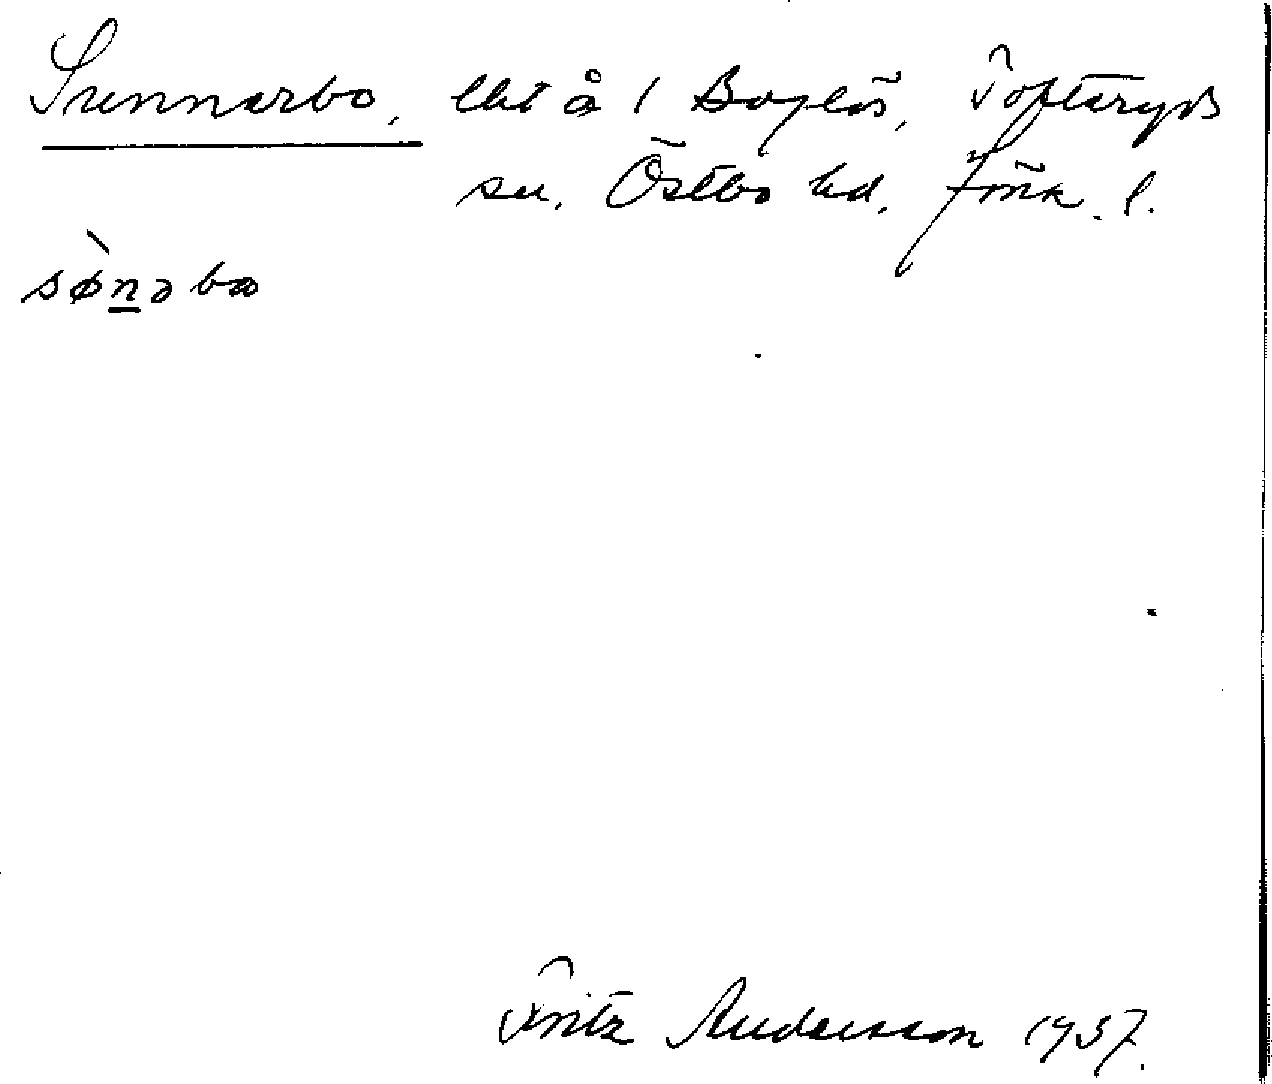 Sunnerbo, lht å 1 Boglös, Tofteryds
sn. Östbo hd. Jönk. l.
sø̀nəbω
Fritz Andersson 1937.